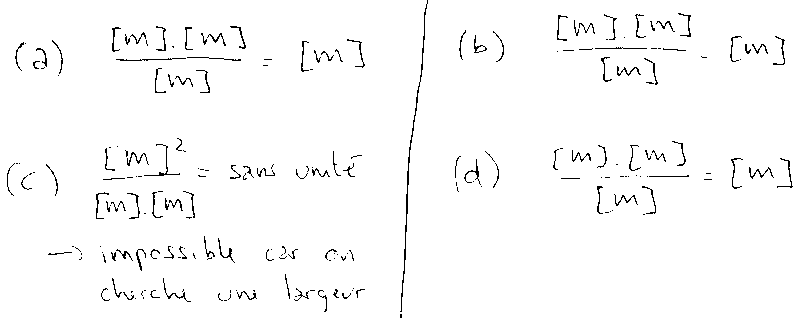 (a) [m].[m] / [m] = [m]
(b) [m].[m] / [m] = [m]
(c) [m]² / [m].[m] = sans unité
→ impossible car on
cherche une largeur
(d) [m].[m] / [m] = [m]